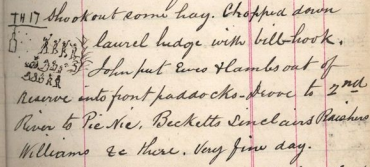 TH 17 Shook out some hay. Chopped down
laurel hedge with bill-hook.
John put Ewes & Lambs out of
reserve into front paddocks - Drove to 2nd
River to Pic-Nic. Becketts Sinclairs
Williams &c there. Very fine day.